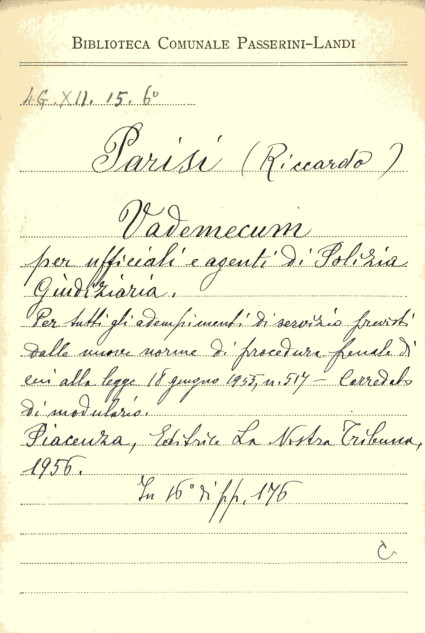 BIBLIOTECA COMUNALE PASSERINI-LANDI
4G.XII. 15. 6º
Parisi (Riccardo)
Vademecum
per ufficiali e agenti di Polizia
Giudiziaria.
Per tutti gli adempimenti di servizio previsti
dalle nuove norme di procedura penale di
cui alla legge 18 giugno 1955, n. 517 - Corredato
di modulario.
Piacenza, Editrice La Nostra Tribuna,
1956.
In 16º di pp. 176
C